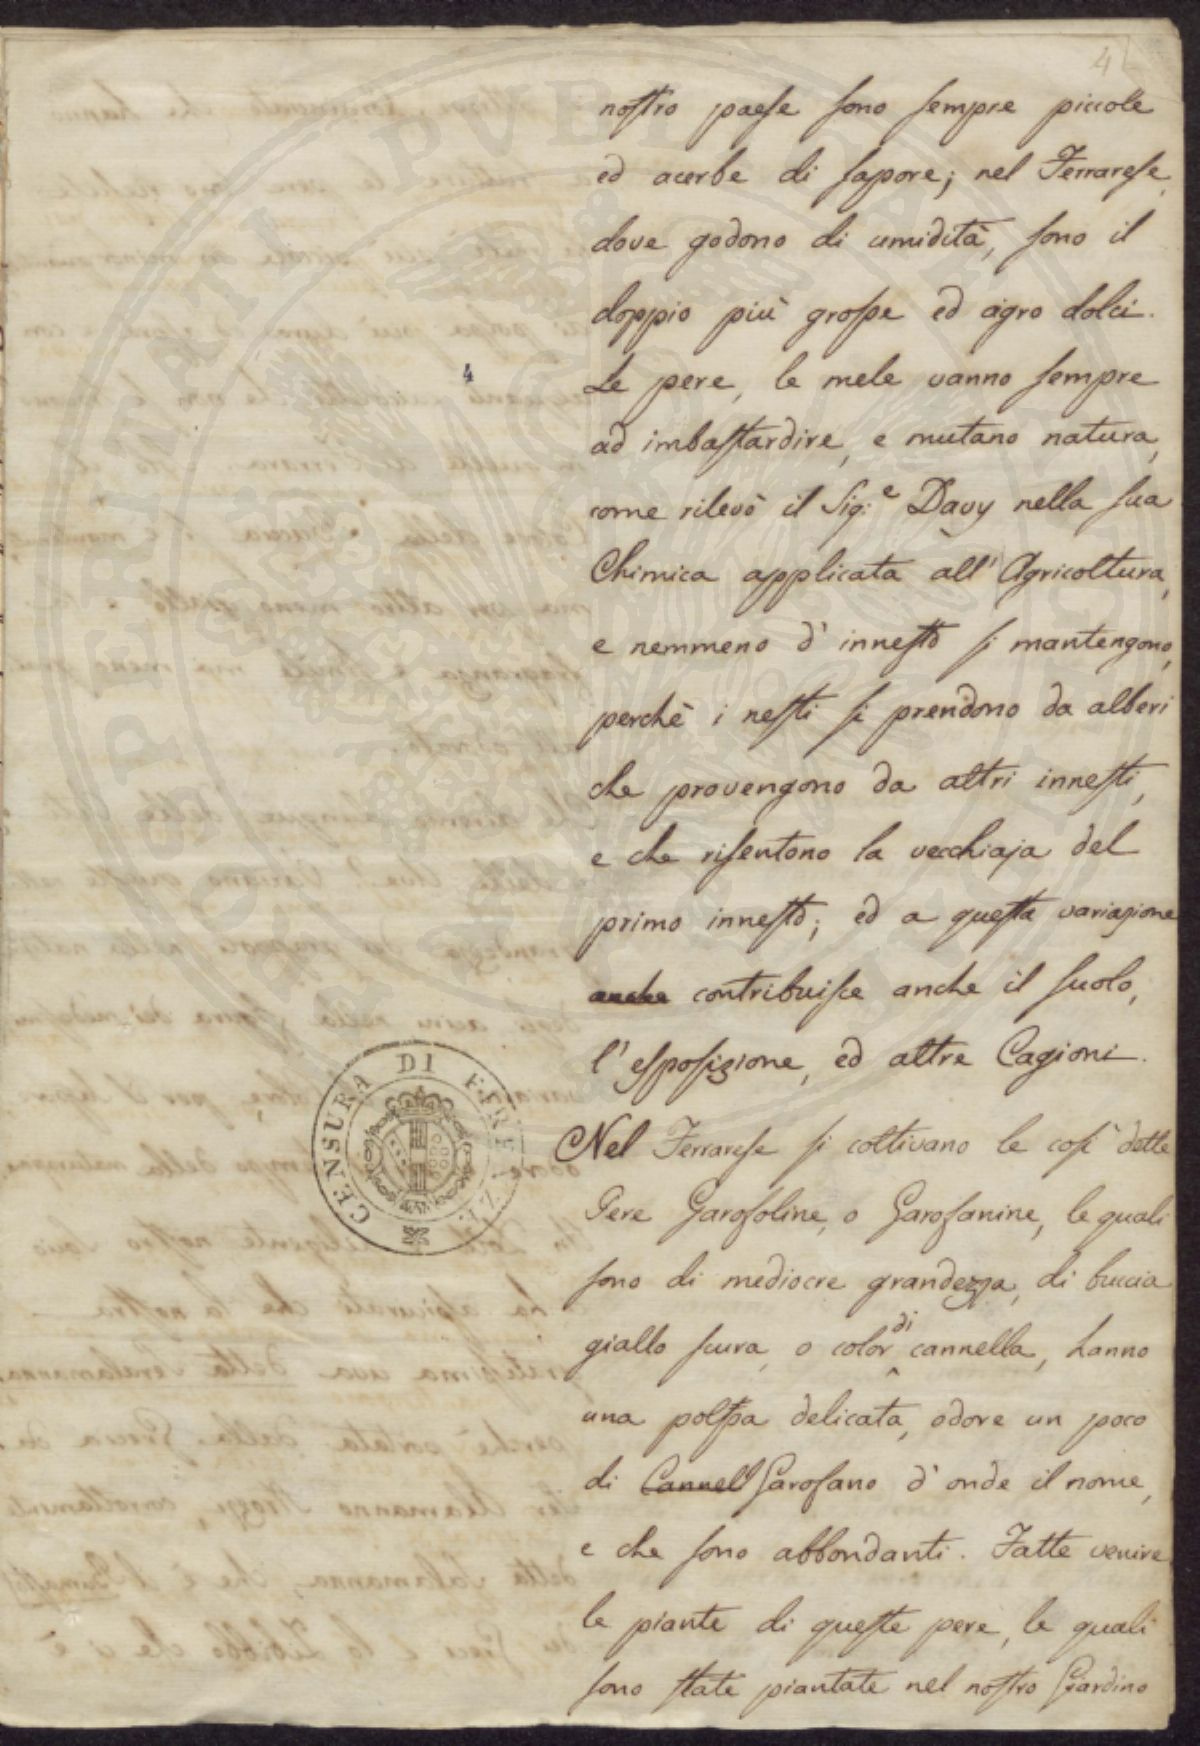 4
nostro paese sono sempre piccole
ed acerbe di sapore; nel Ferrarese,
dove godono di umidità, sono il
doppio più grosse ed agro dolci.
Le pere, le mele vanno sempre
ad imbastardire, e mutano natura,
come rilevò il Sig:e Davy nella sua
Chimica applicata all'Agricoltura,
e nemmeno d'innesto si mantengono,
perchè i nesti si prendono da alberi
che provengono da altri innesti,
e che risentono la vecchiaja del
primo innesto; ed a questa variazione
anche contribuisce anche il suolo,
l'esposizione, ed altre Cagioni.
Nel Ferrarese si coltivano le così dette
Pere Garofoline, o Garofanine, le quali
sono di mediocre grandezza, di buccia
giallo scura, o color di cannella, hanno
una polpa delicata, odore un poco
di Cannell Garofano d'onde il nome,
e che sono abbondanti. Fatte venire
le piante di queste pere, le quali
sono state piantate nel nostro Giardino
4
CENSURA DI FIRENZE